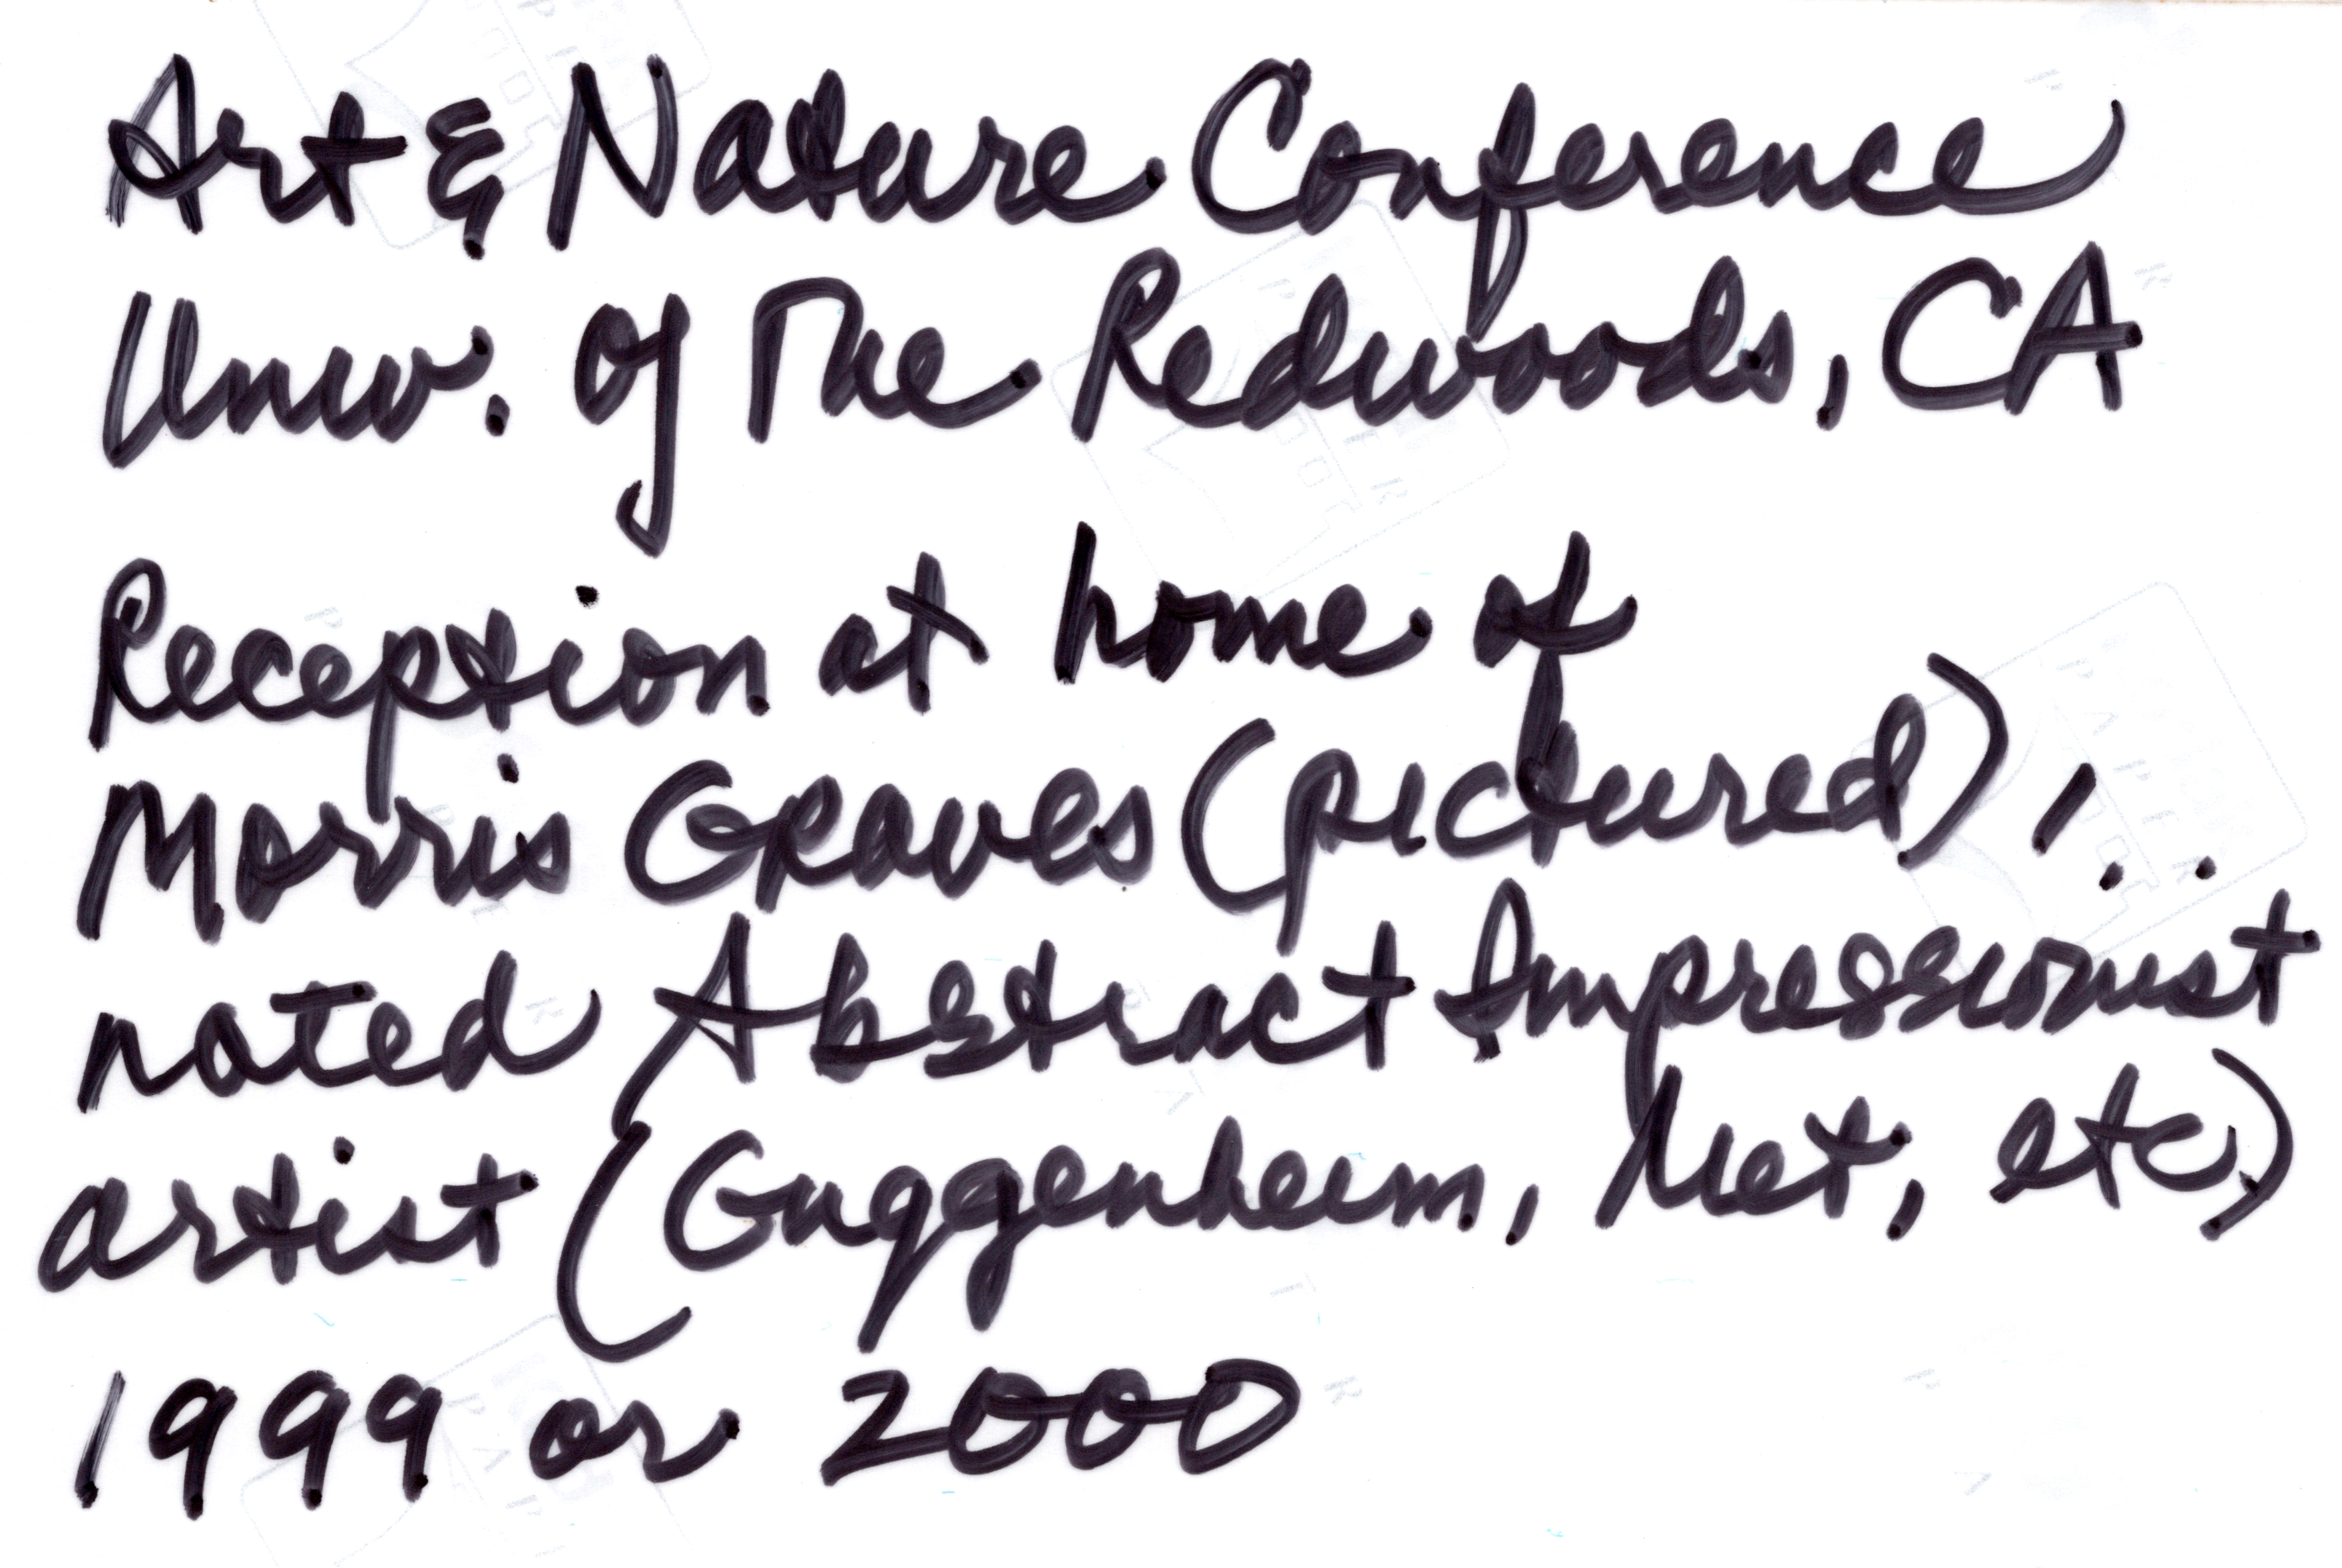 Art & Nature Conference
Univ. of The Redwoods, CA
Reception at home of
Morris Graves (pictured),
noted Abstract Impressionist
artist (Guggenheim, Met, etc.)
1999 or 2000